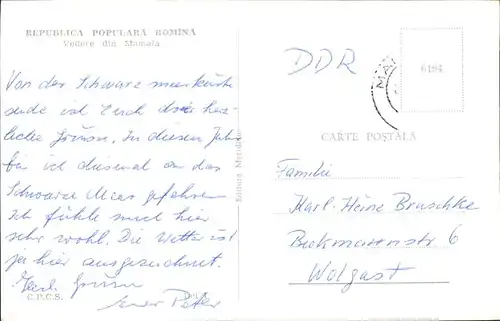 REPUBLICA POPULARĂ ROMÎNĂ
Vedere din Mamaia
Von der Schwarzmeerküste
sende ich Euch herz-
liche Grüsse. In diesem Jahr
bin ich diesmal an das
Schwarze Meer gefahren
Ich fühle mich hier
sehr wohl. Die Wetter ist
ja hier ausgezeichnet.
Herzl. Grüsse
Euer Peter
C.P.C.S.
Editura Meridiane
DDR
MA
6194
CARTE POŞTALĂ
Familie
Karl-Heinz Bruschke
Wolgast